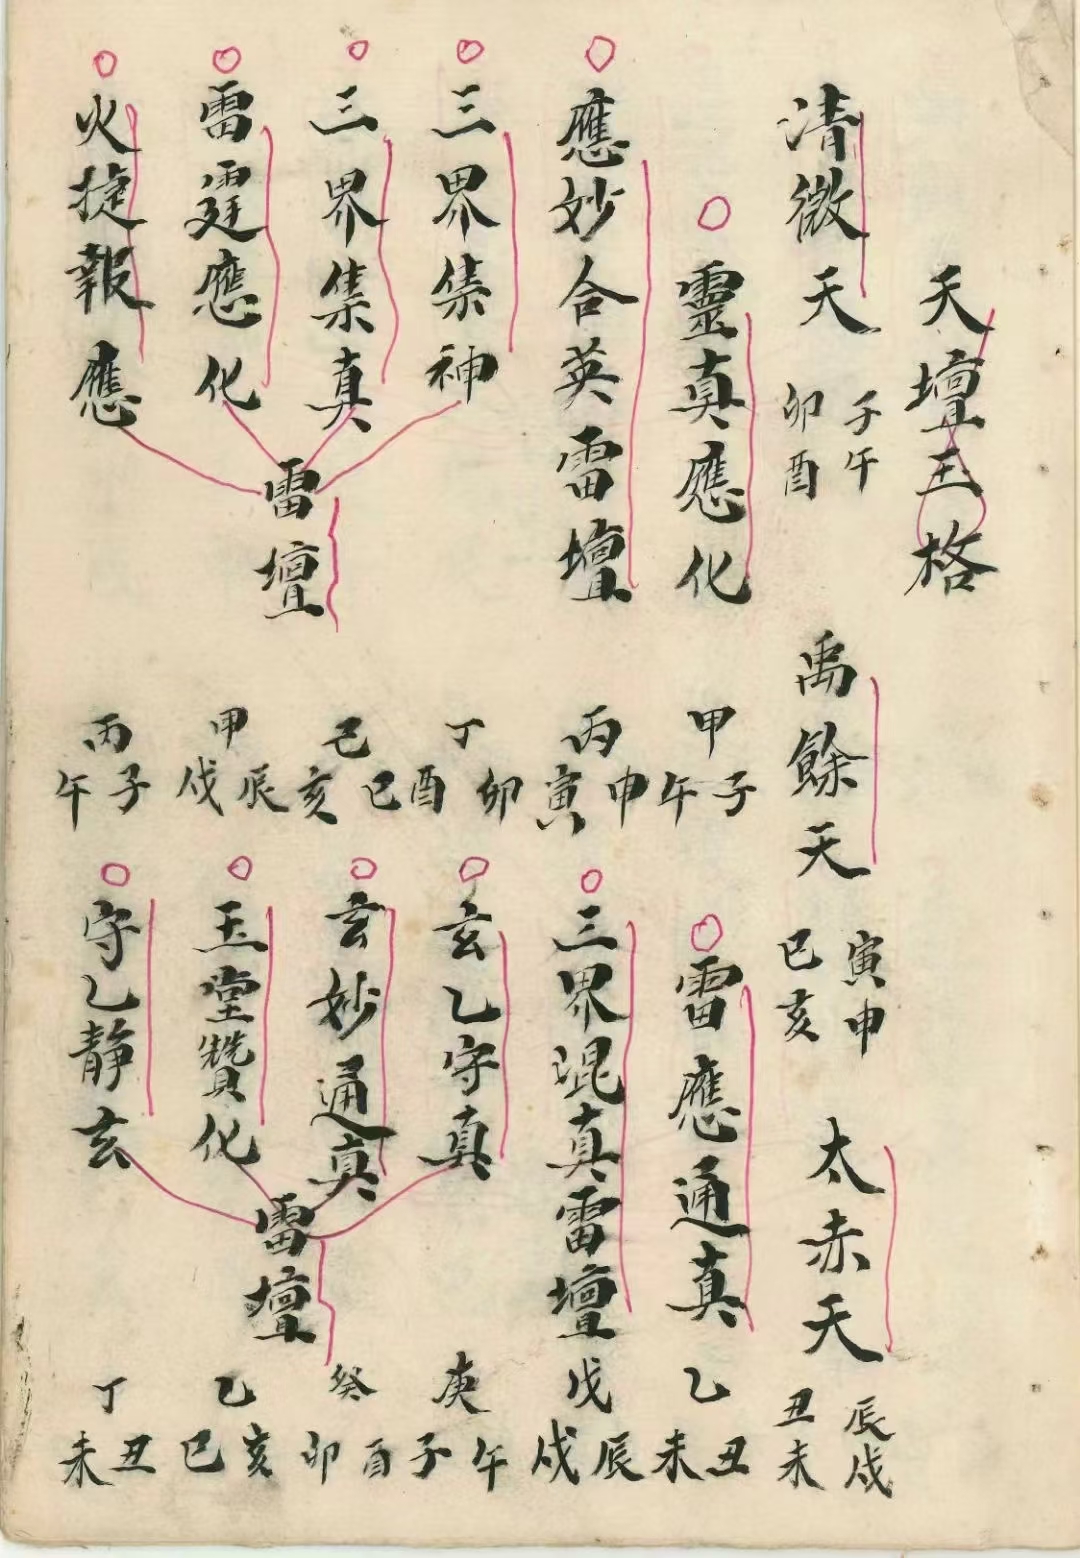 天壇玉格
清微天 子午卯酉
禹餘天 寅申巳亥
太赤天 辰戌丑未
靈真應化 甲子午
雷應通真 乙丑未
應妙合英雷壇 丙申寅
三界混真雷壇 戊辰戌
三界集神 丁卯酉
玄乙守真 庚午子
三界集真 己巳亥
玄妙通真 癸酉卯
雷霆應化 甲辰戌
玉堂贊化 乙亥巳
火捷報應 丙子午
守乙靜玄 丁丑未
雷壇
雷壇